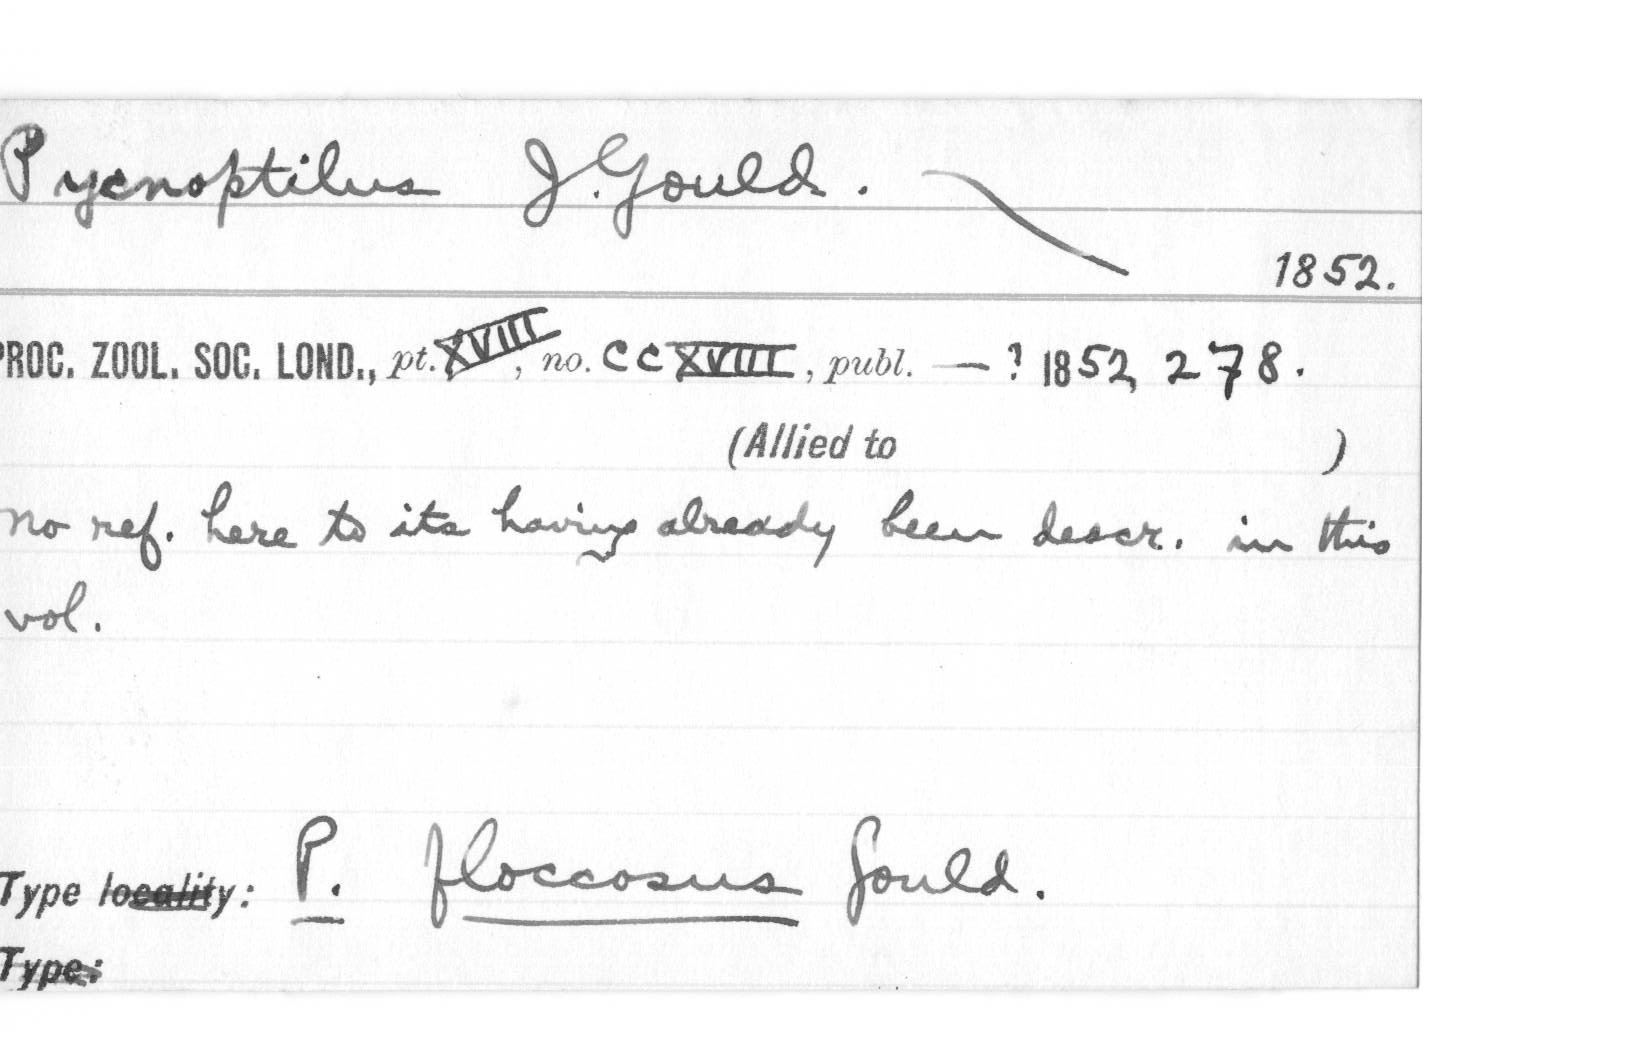 Pycnoptilus J. Gould.
1852.
PROC. ZOOL. SOC. LOND., pt. XVIII, no. CCXVIII, publ. — ? 1852, 278.
(Allied to )
no ref. here to its having already been descr. in this
vol.
Type locality: P. floccosus Gould.
Type: